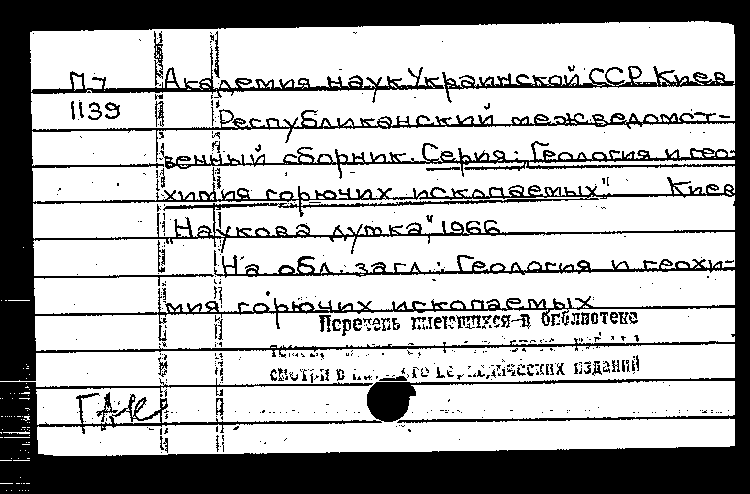 П7 Академия наук Украинской ССР Киев
1139 Республиканский межведомот-
венный сборник. Серия: „Геология и гео-
химия горючих ископаемых". Киев
„Наукова думка", 1966
На обл. загл.: Геология и геохи-
мия горючих ископаемых
Перечень имеющихся в библиотеке
смотри в изданий
ГАК